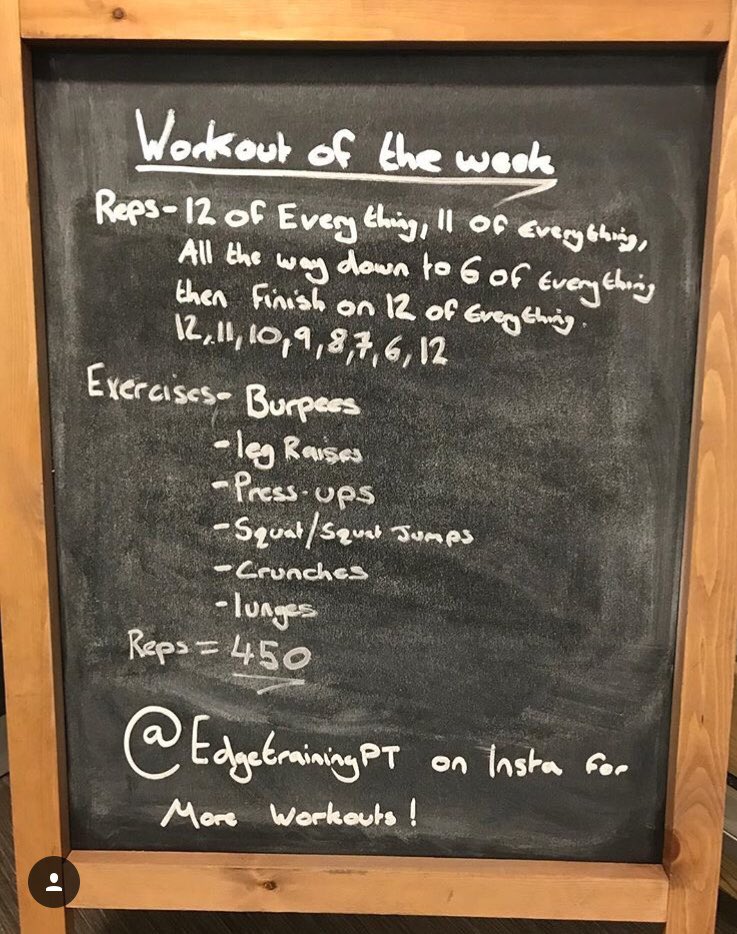 Workout of the week
Reps- 12 of Everything, 11 of everything,
All the way down to 6 of everything
then Finish on 12 of everything.
12, 11, 10, 9, 8, 7, 6, 12
Exercises- Burpees
- leg Raises
- Press-ups
- Squat/Squat Jumps
- Crunches
- lunges
Reps = 450
@EdgetrainingPT on Insta for
More Workouts!